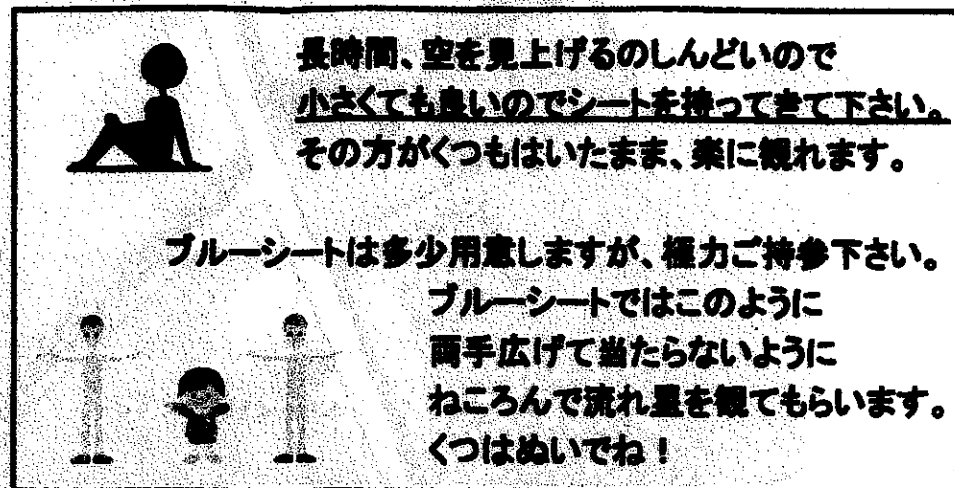 長時間、空を見上げるのしんどいので
小さくても良いのでシートを持ってきて下さい。
その方がくつもはいたまま、楽に観れます。
ブルーシートは多少用意しますが、極力ご持参下さい。
ブルーシートではこのように
両手広げて当たらないように
ねころんで流れ星を観てもらいます。
くつはぬいでね！